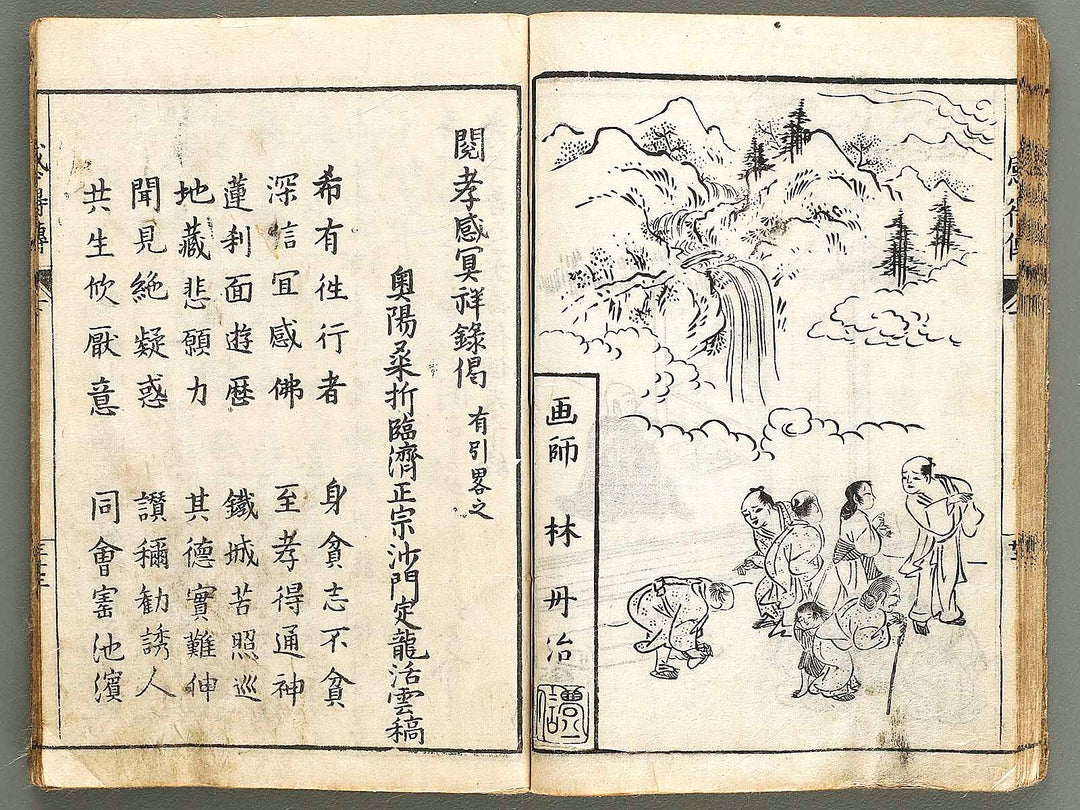 画師 林 丹治
閲孝感冥祥錄偈 有引畧之
奧陽桒折臨濟正宗沙門定龍活雲稿
希有徃行者 身貧志不貧
深信宜感佛 至孝得通神
蓮刹面遊歴 鐵城苦照巡
地藏悲願力 其德實難伸
聞見絶疑惑 讃稱勸誘人
共生欣厭意 同會宝池濱